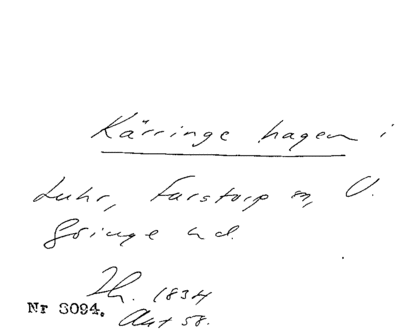 Kärringe hagen i
Luhr, Farstorp sn, V.
Göinge hd.
Th. 1834
Akt 58.
Nr 3094.